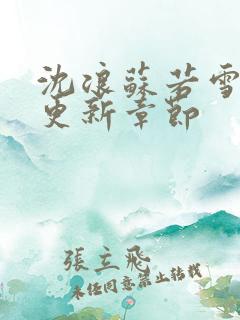 沈浪蘇若雪
更新章節
張立飛
未經同意禁止轉載